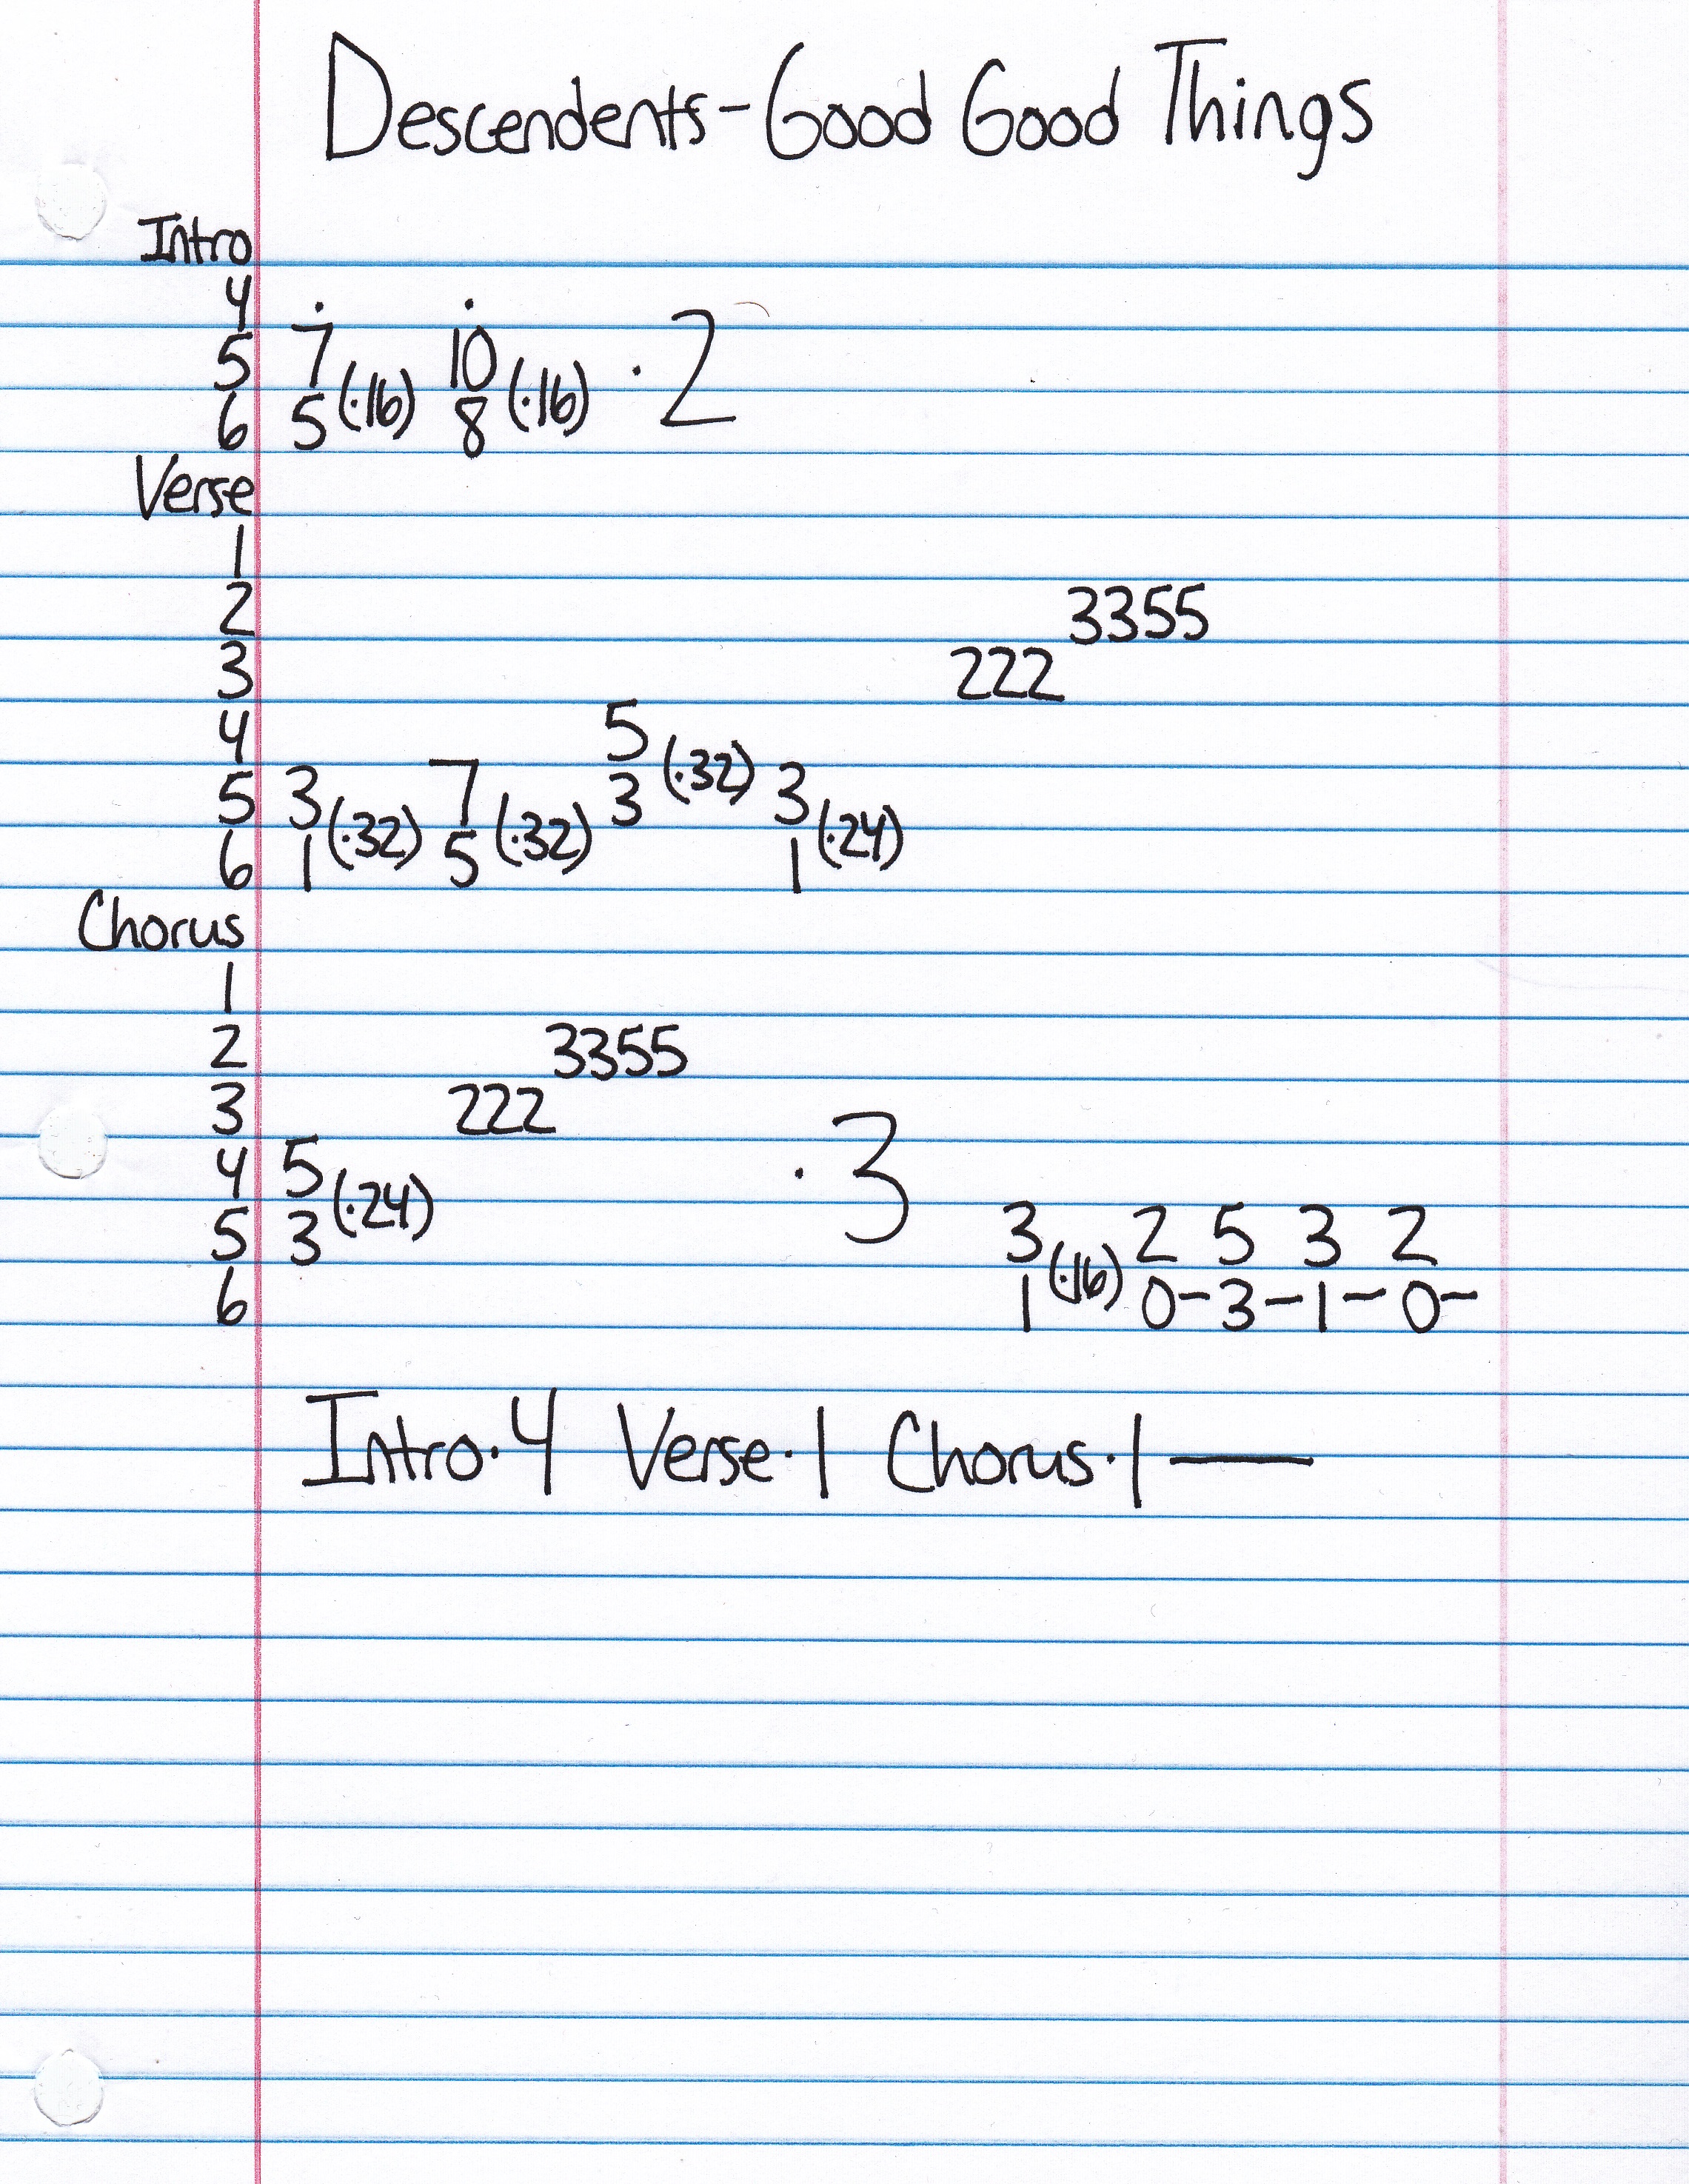 Descendents - Good Good Things
Intro
4 . .
5 7 (·16) 10 (·16) · 2
6 5 8
Verse
1
2 3355
3 222
4 5 (·32)
5 3 (·32) 7 (·32) 3 3 (·24)
6 1 5 1
Chorus
1
2 3355
3 222
4 5 (·24) · 3
5 3 3 (·16) 2 5 3 2
6 1 0- 3- 1- 0-
Intro·4 Verse·1 Chorus·1 —